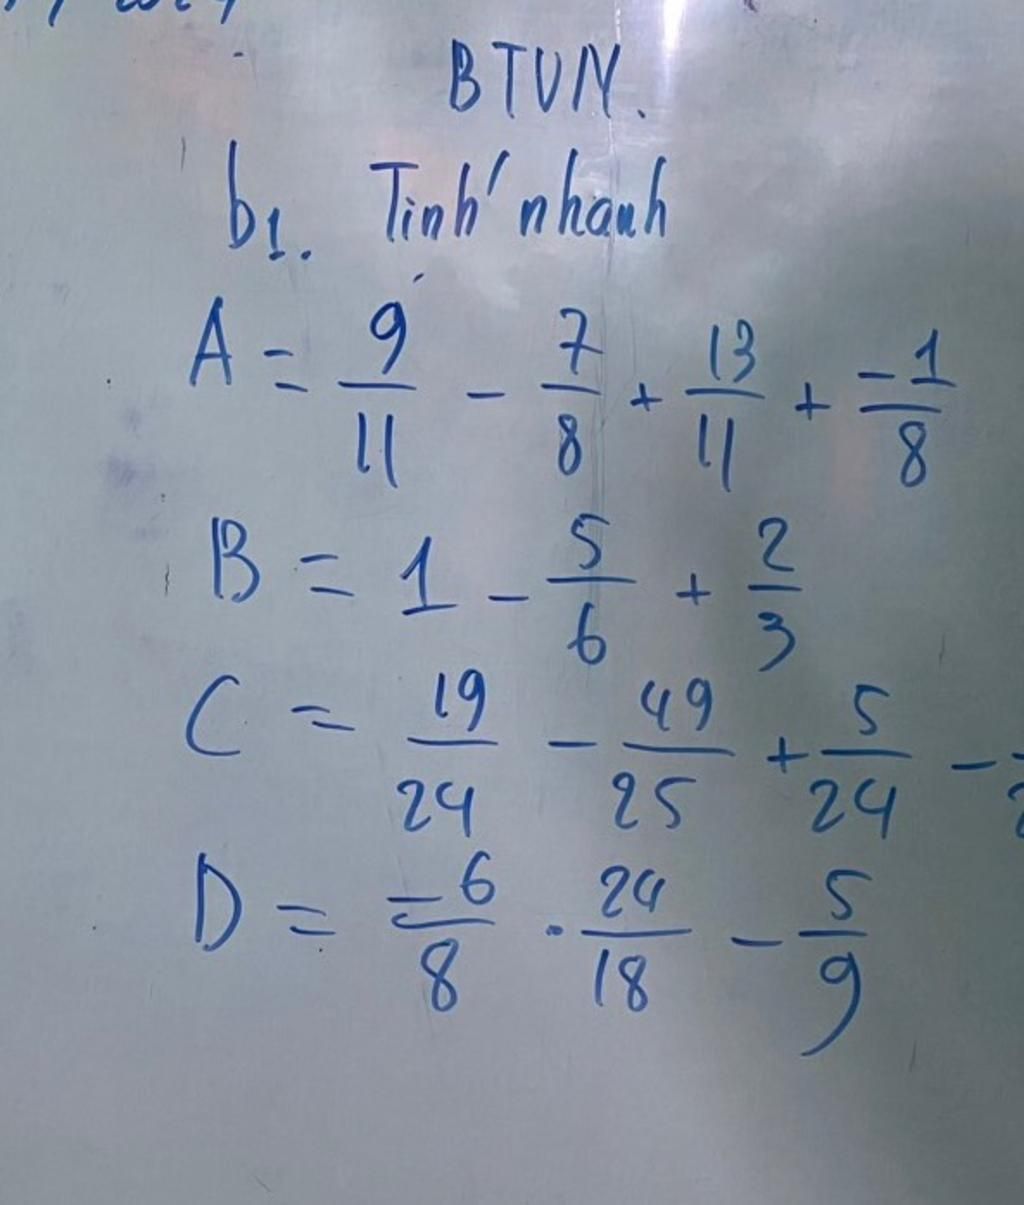 BTVN.
b1. Tính nhanh
A = 9/11 - 7/8 + 13/11 + -1/8
B = 1 - 5/6 + 2/3
C = 19/24 - 49/25 + 5/24 -
D = -6/8 . 24/18 - 5/9